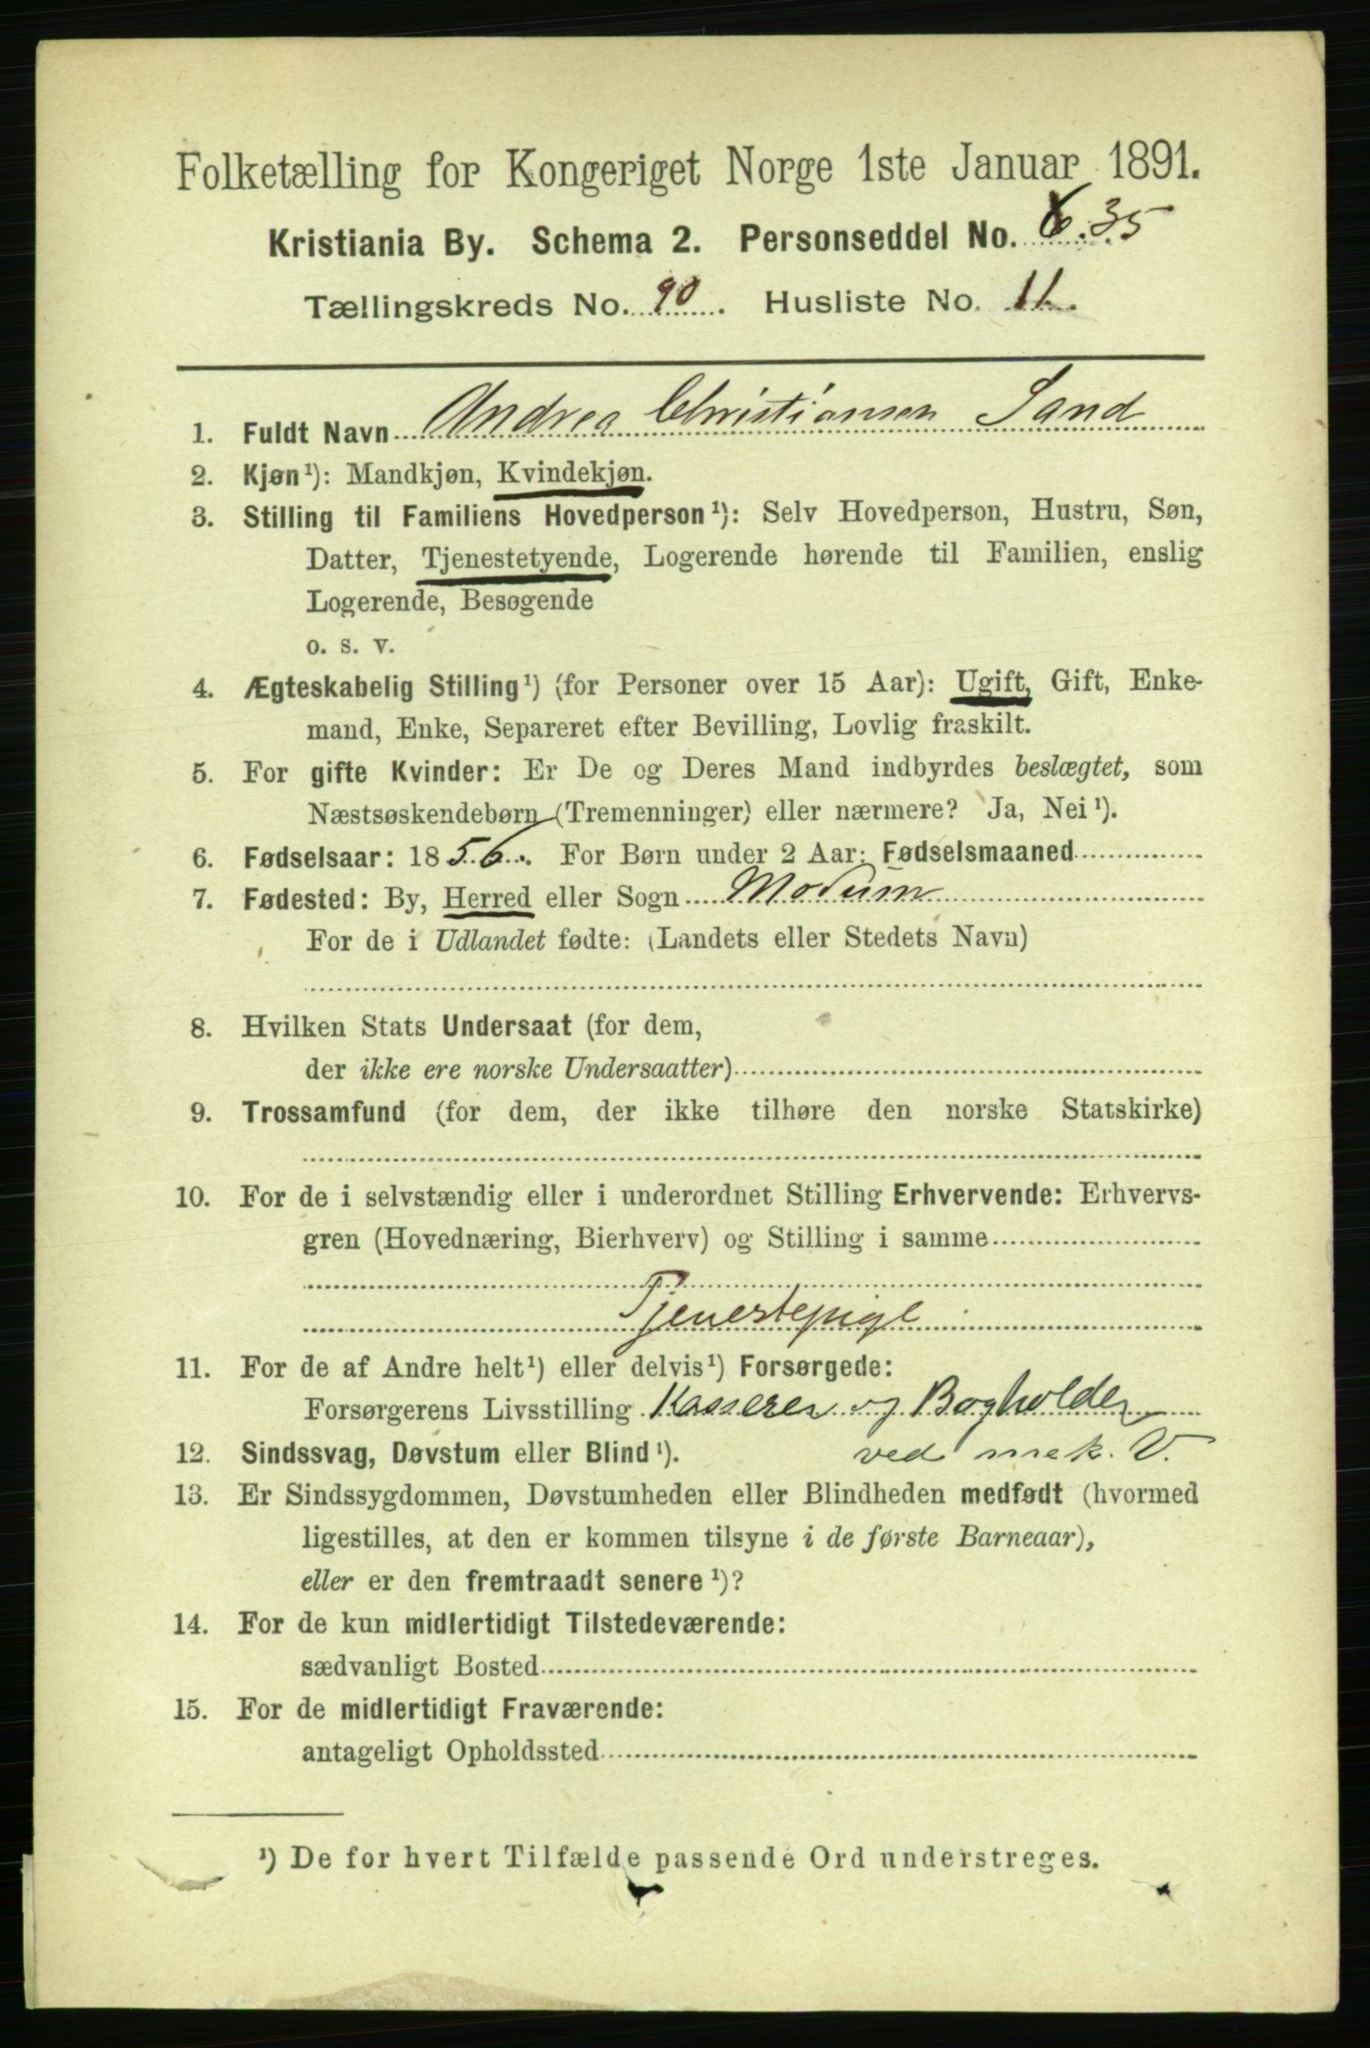 Folketælling for Kongeriget Norge 1ste Januar 1891.
Kristiania By. Schema 2. Personseddel No. 6. 35
Tællingskreds No. 90. Husliste No. 11.
1. Fuldt Navn Andrea Christiansen Sand
2. Kjøn¹): Mandkjøn, Kvindekjøn.
3. Stilling til Familiens Hovedperson¹): Selv Hovedperson, Hustru, Søn,
Datter, Tjenestetyende, Logerende hørende til Familien, enslig
Logerende, Besøgende
o. s. v.
4. Ægteskabelig Stilling¹) (for Personer over 15 Aar): Ugift, Gift, Enke-
mand, Enke, Separeret efter Bevilling, Lovlig fraskilt.
5. For gifte Kvinder: Er De og Deres Mand indbyrdes beslægtet, som
Næstsøskendebørn (Tremenninger) eller nærmere? Ja, Nei¹).
6. Fødselsaar: 1856. For Børn under 2 Aar: Fødselsmaaned
7. Fødested: By, Herred eller Sogn Modum
For de i Udlandet fødte: (Landets eller Stedets Navn)
8. Hvilken Stats Undersaat (for dem,
der ikke ere norske Undersaatter)
9. Trossamfund (for dem, der ikke tilhøre den norske Statskirke)
10. For de i selvstændig eller i underordnet Stilling Erhvervende: Erhvervs-
gren (Hovednæring, Bierhverv) og Stilling i samme
Tjenestepige
11. For de af Andre helt¹) eller delvis¹) Forsørgede:
Forsørgerens Livsstilling Kasserer og Bogholder
12. Sindssvag, Døvstum eller Blind¹). ved mek. V.
13. Er Sindssygdommen, Døvstumheden eller Blindheden medfødt (hvormed
ligestilles, at den er kommen tilsyne i de første Barneaar),
eller er den fremtraadt senere¹)?
14. For de kun midlertidigt Tilstedeværende:
sædvanligt Bosted
15. For de midlertidigt Fraværende:
antageligt Opholdssted
¹) De for hvert Tilfælde passende Ord understreges.